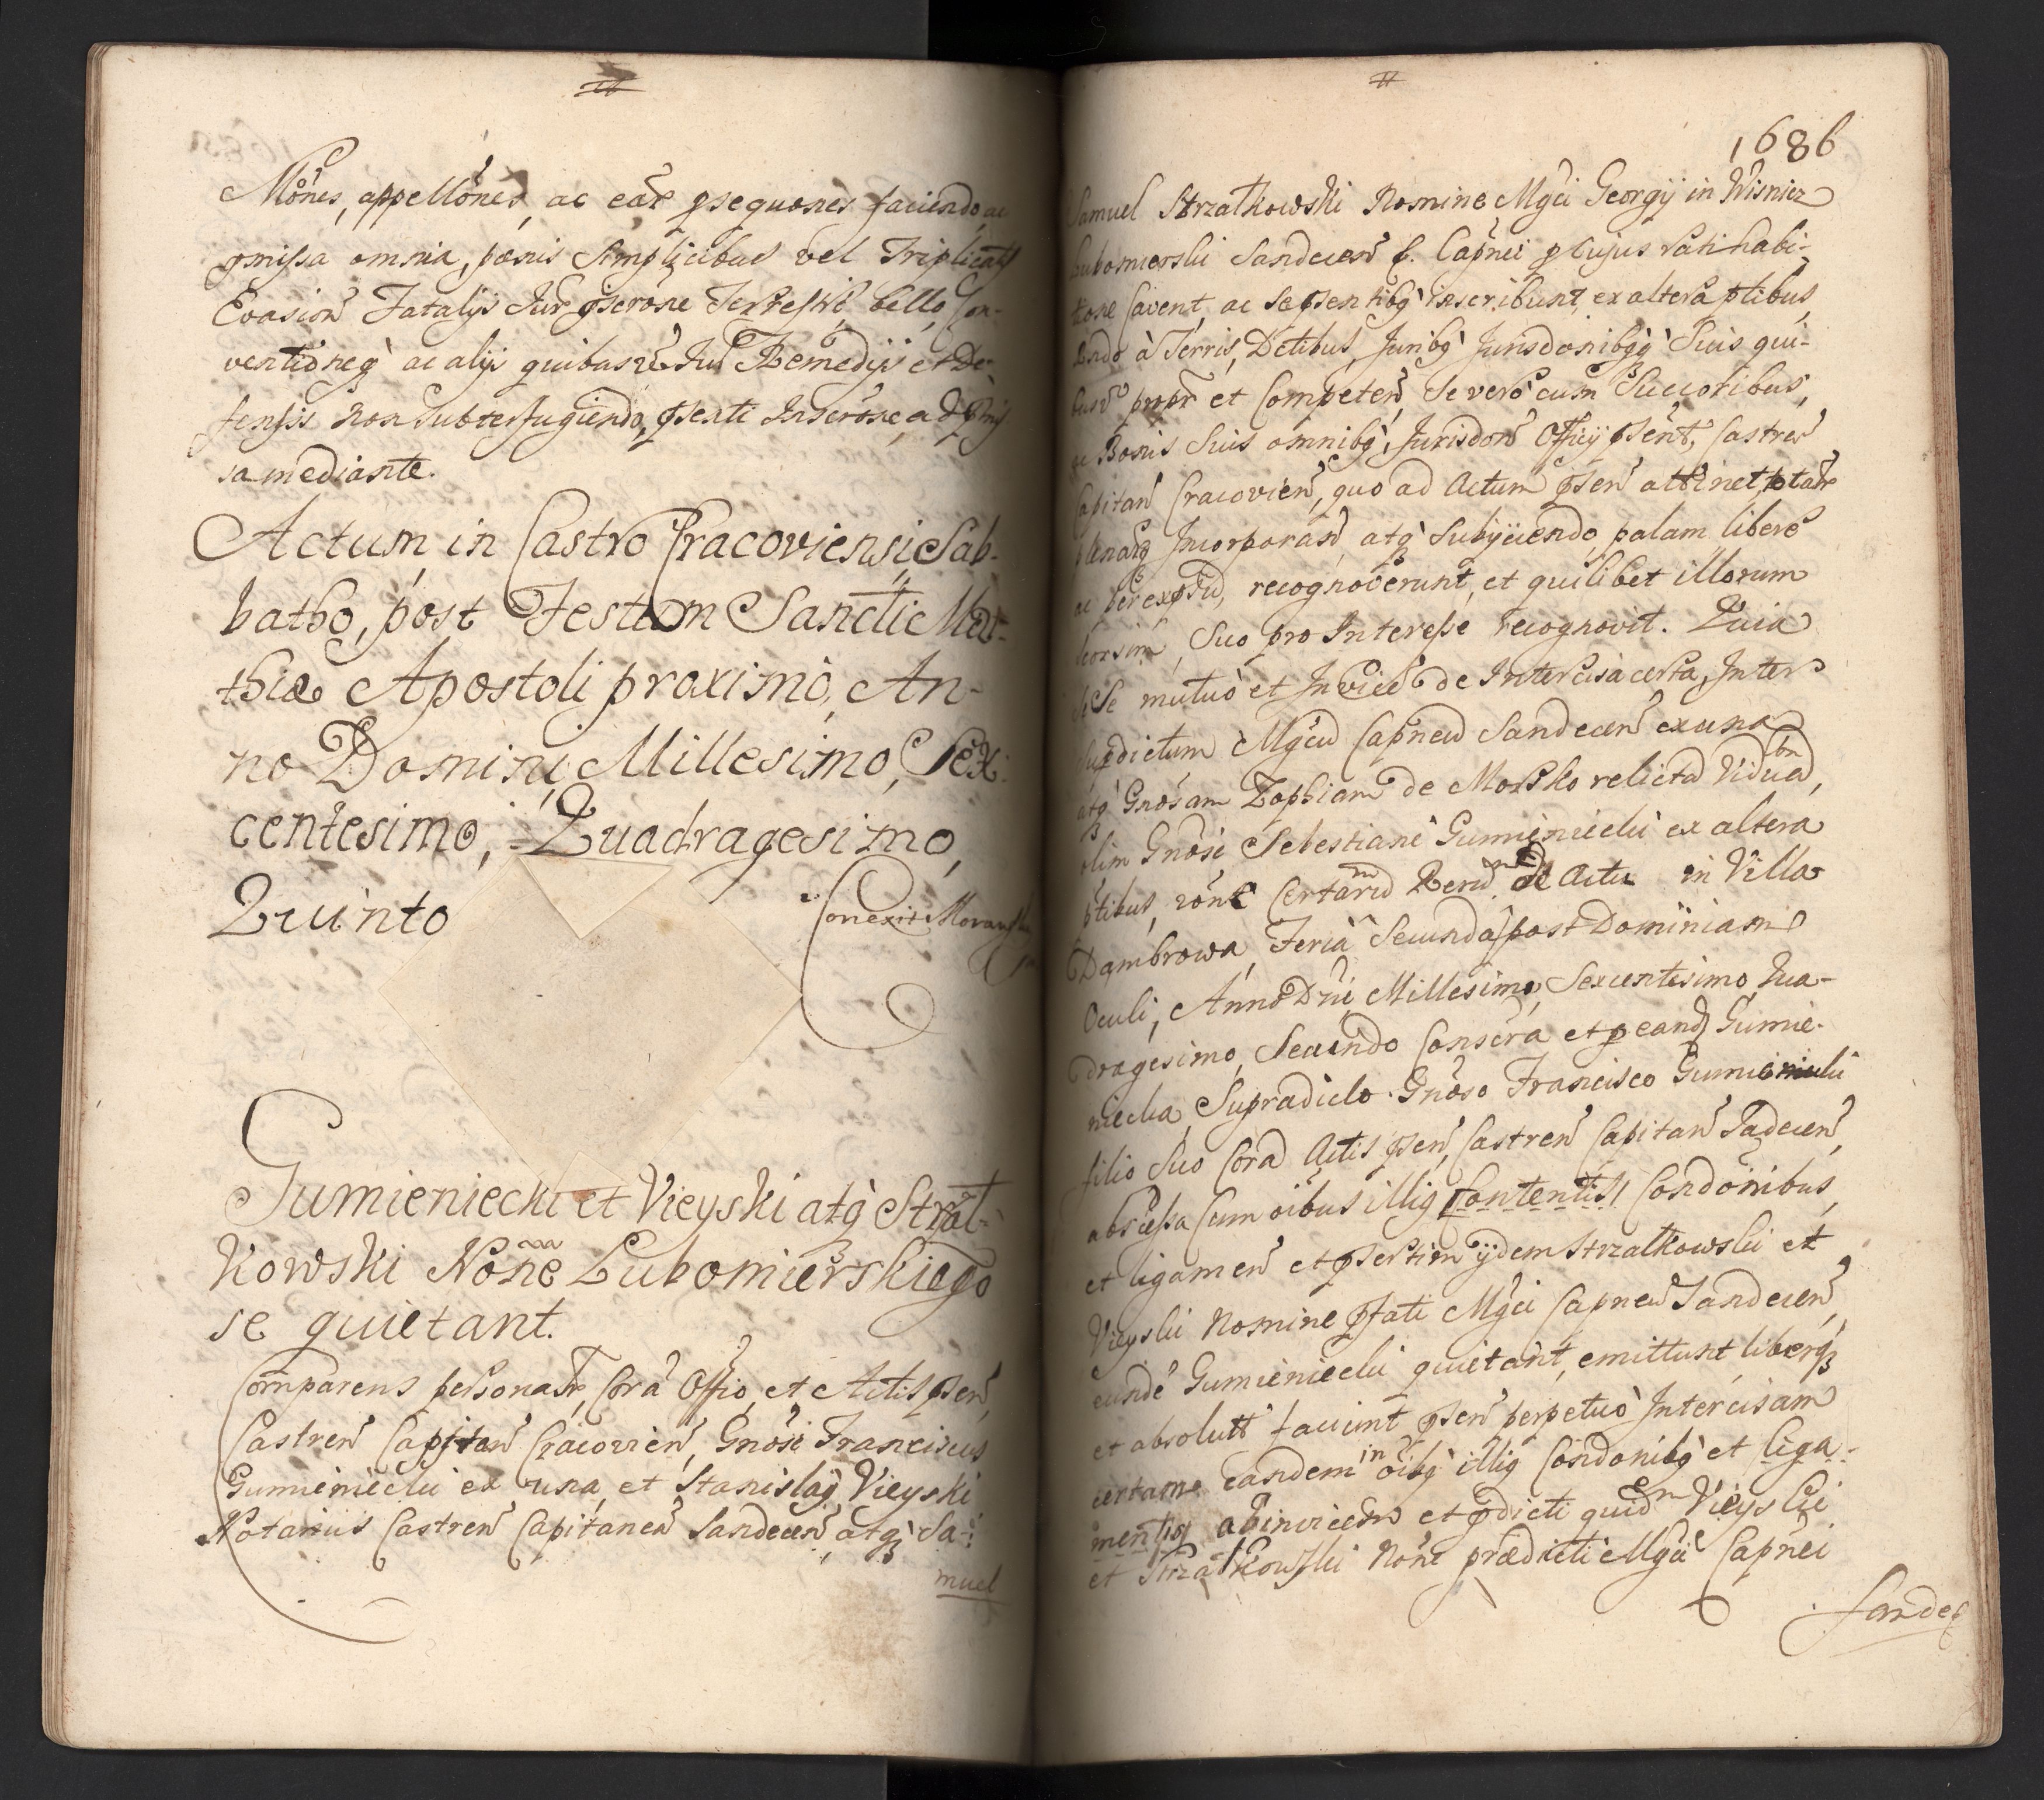 Mönes, appellönes, ac ear psequönes faciendo, ac
pmissa omnia, pænis Simplicibus vel Triplicatis
Evasion Fatalijs Jur pscrone Terrestri bello, Con-
ventioneq ac alijs quibusvis Jur Remedijs et De-
fensis non subterfugiendo, psenti Inscrone ad pmis
sa mediante.
Actum, in Castro Cracoviensi, Sab-
batho, post Festum Sancti Mat-
thiæ Apostoli proximo, An-
no Domini, Millesimo, Sex-
centesimo, Quadragesimo,
Quinto
Conexit Moraws
Gumieniecki et Vieyski atq Strzał-
kowski Noñe Lubomierskiego
se quietant.
Comparens personalr, Cora Offio, et Actis psen,
Castren Capitan Cracovien, Gnösi Franciscus
Gumieniecki ex una, et Stanislaij Vieyski
Notarius Castren Capitanea Sandecen atq Sa-
muel
1686
Samuel Strzatkowski Nomine Mgci Georgij in Wisnicz
Lubomierski Sandecen S. Capnei p Cujus ratihabi-
tione Cavent, ac se psentibq inscribunt, ex altera ptibus,
Rndo à Terris, Dctibus, Juribq Jurisdonibqq Suis qui-
busv propr et Competen, Se vero cum Succoribus,
ac Bonis Suis omnibq, Jurisdon Officij psent, Castren
Capitan Cracovien, quo ad Actum psen attinet, totalr
plenarq Incorporand, atq Subijciendo, palam libere
ac per expssu, recognoverunt, et quilibet illorum
seorsim, Suo pro Interesse recognovit. Quia
ipsi Se mutuo et Invice de Intercisa certa, Inter
Supdictum Mgcu Capneu Sandecen ex una
atq Gnosam Zophiam de Morsko relicta Vidua,
olim Gnösi Sebestiani Gumieniecki ex altera
ptibus, röne Certaru Reru de Actu in Villa
Dąmbrowa, Feria Secunda post Dominiam
Oculi, Anno Dni Millesimo, Sexcentesimo Qua-
dragesimo, Secundo Conscra et p eand Gumie-
niecka, Supradicto Gnöso Francisco Gumieniecki
filio Suo Cora Actis psen, Castren Capitan Sadecen,
abscessa Cum oibus illiq Contentis, Condönibus,
et ligamen et psertim ijdem Strzatkowski et
Vieyski Nomine pfati Mgci Capnei Sandecen,
eunde Gumieniecki quietant, emittunt, liberq
et absolutt faciunt psen perpetuo Intercisam
certame eandem in oibq illiq Condonibq et Liga-
mentiq abinvicem et pdicti quidem Vieyski
et Strzatkowski None prædicti Mgci Capnei
Sandec